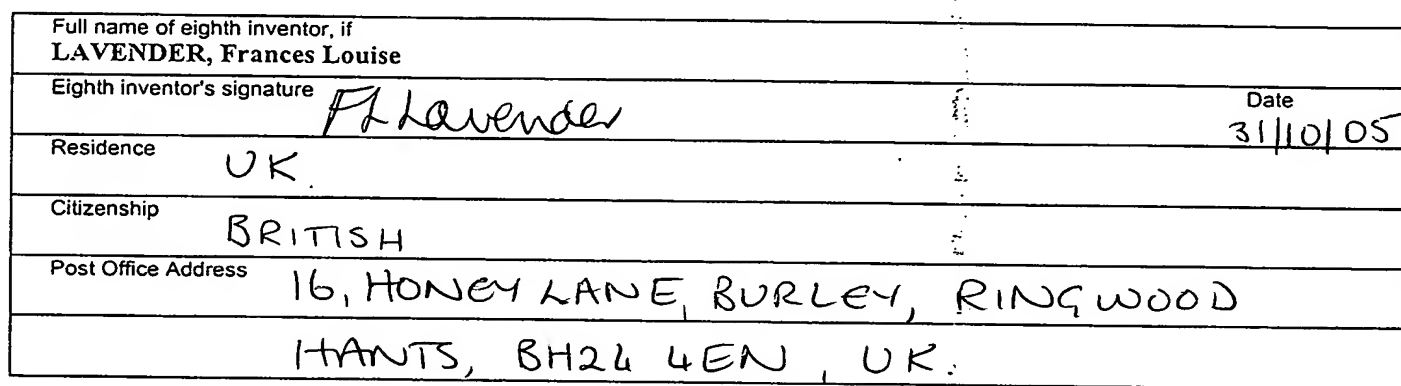 Full name of eighth inventor, if
LAVENDER, Frances Louise
Eighth inventor's signature FL Lavender Date
31/10/05
Residence UK.
Citizenship BRITISH
Post Office Address 16, HONEY LANE, BURLEY, RINGWOOD
HANTS, BH24 4EN, UK.